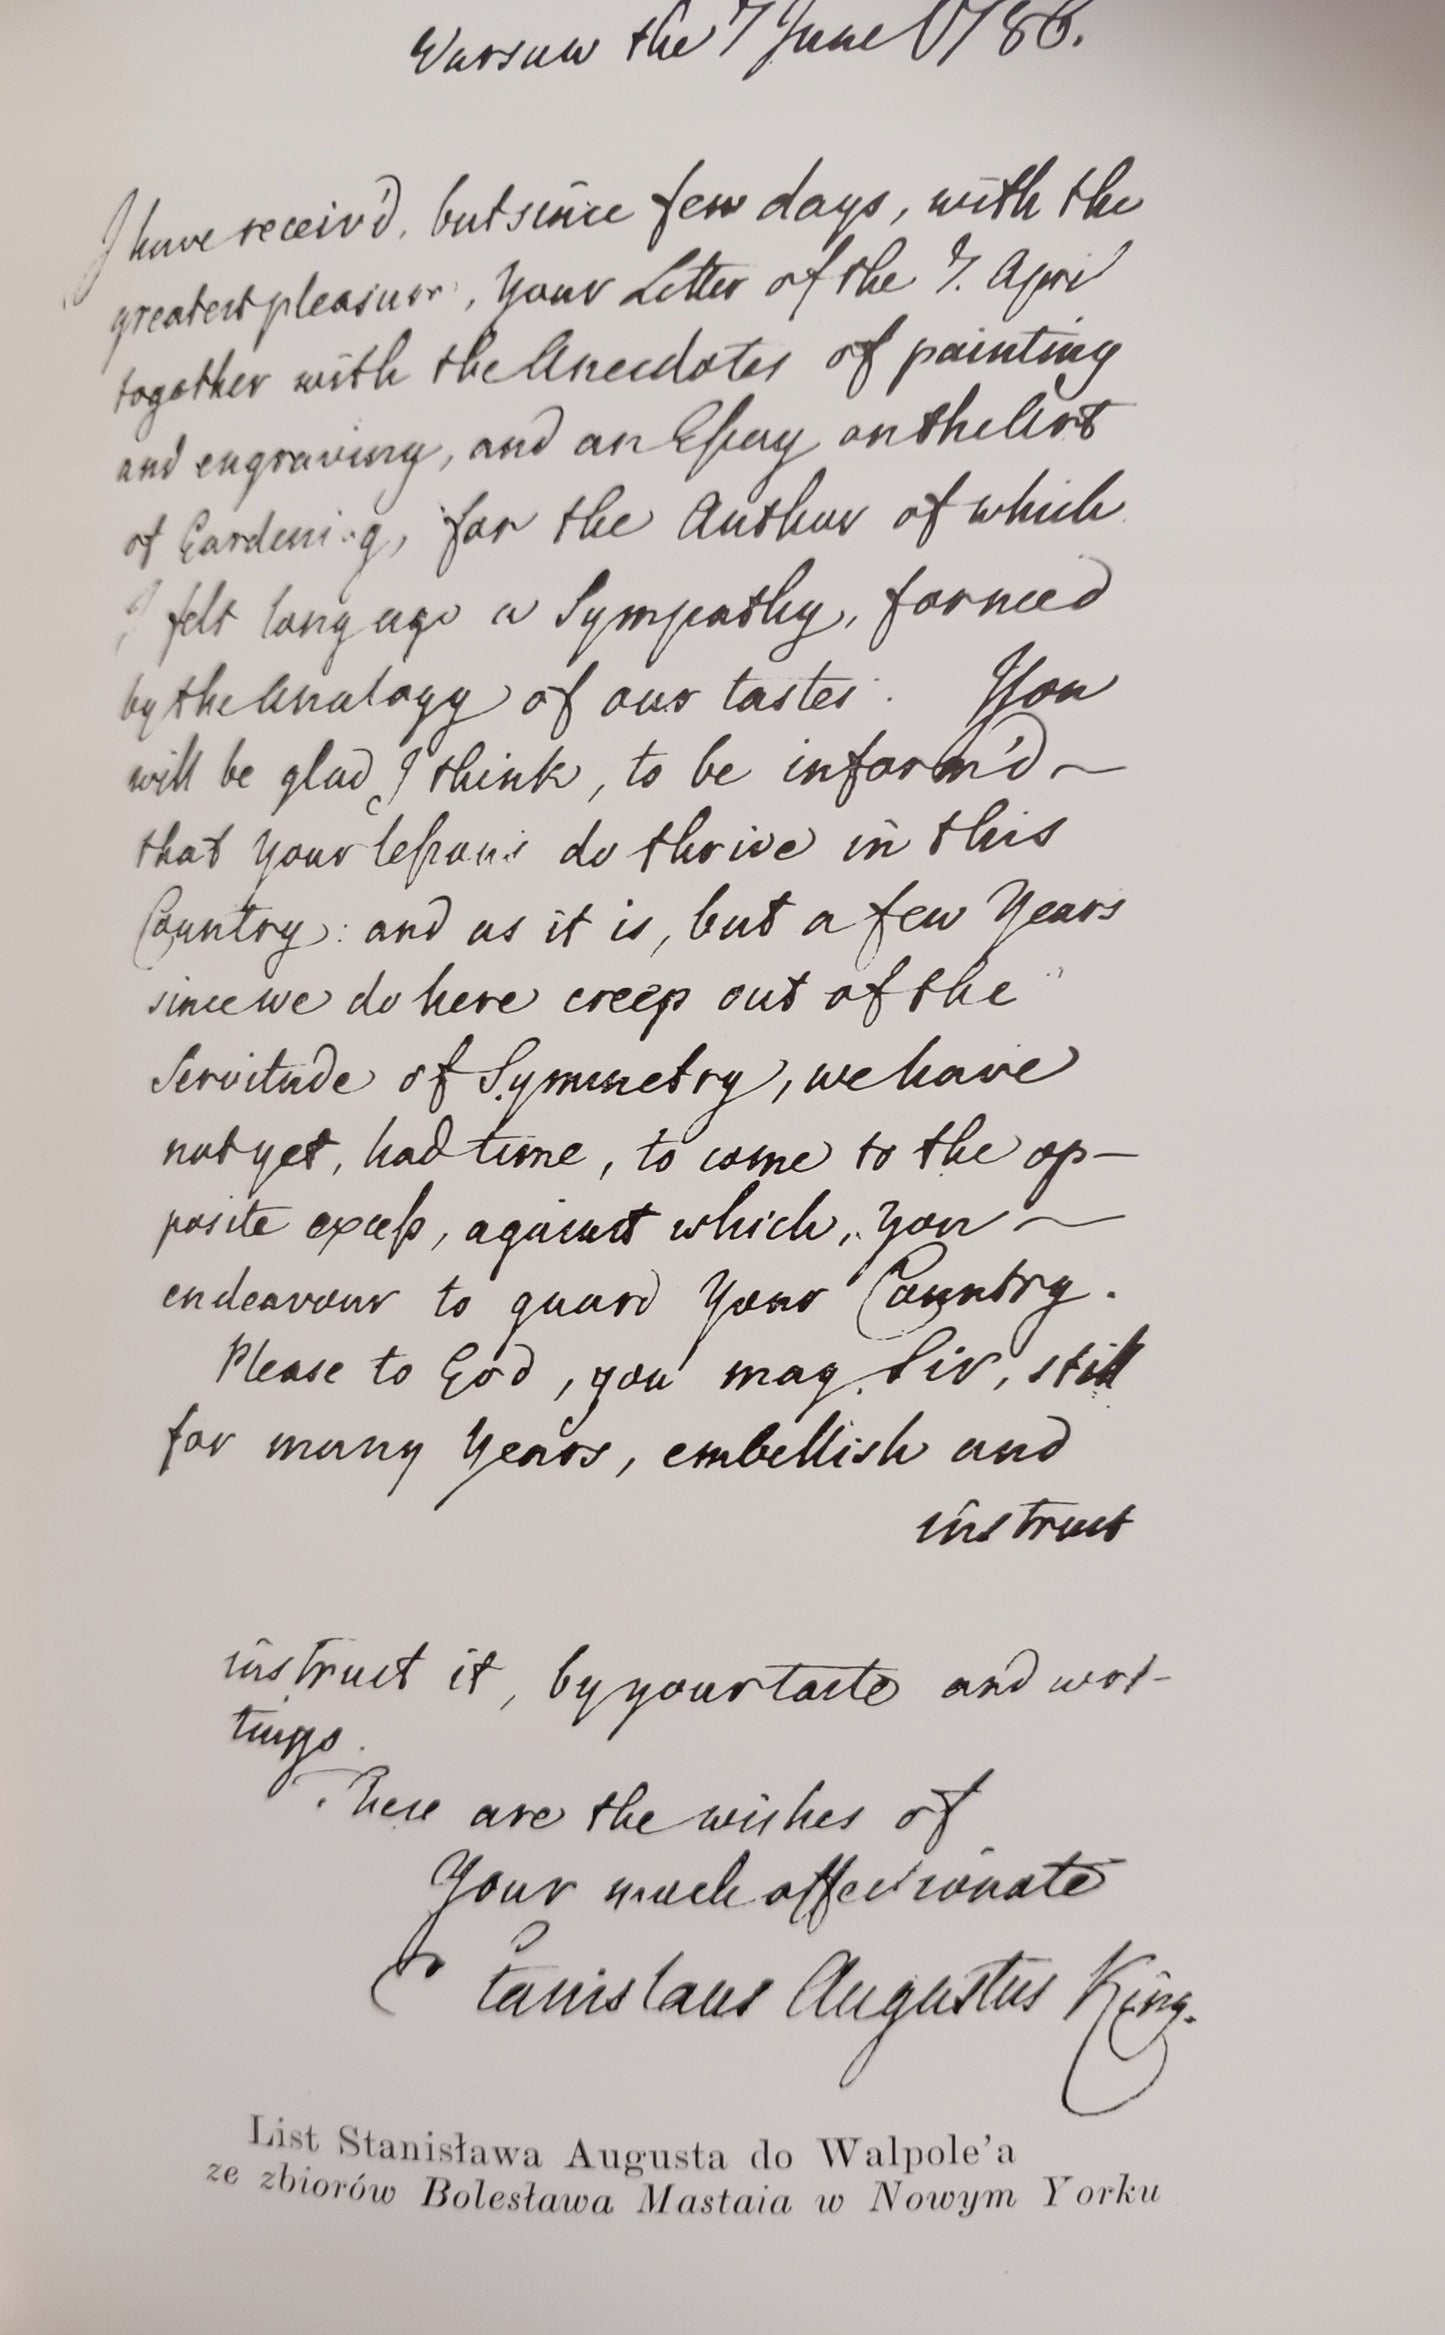 Warsaw the 7 June 1786.
I have receiv'd, but since few days, with the
greatest pleasure, Your Letter of the 7. April
together with the Anecdotes of painting
and engraving, and an Essay on the Art
of Gardening, for the Author of which
I felt long ago a Sympathy, formed
by the Analogy of our tastes. You
will be glad I think, to be inform'd ~
that your lessons do thrive in this
Country: and as it is, but a few Years
since we do here creep out of the
Servitude of Symmetry, we have
not yet, had time, to come to the op-
posite excess, against which, you ~
endeavour to guard Your Country.
Please to God, you may Sir, still
for many Years, embellish and
instruct
instruct it, by your taste and wri-
tings.
These are the wishes of
Your much affectionate
Stanislaus Augustus King.
List Stanisława Augusta do Walpole'a
ze zbiorów Bolesława Mastaia w Nowym Yorku